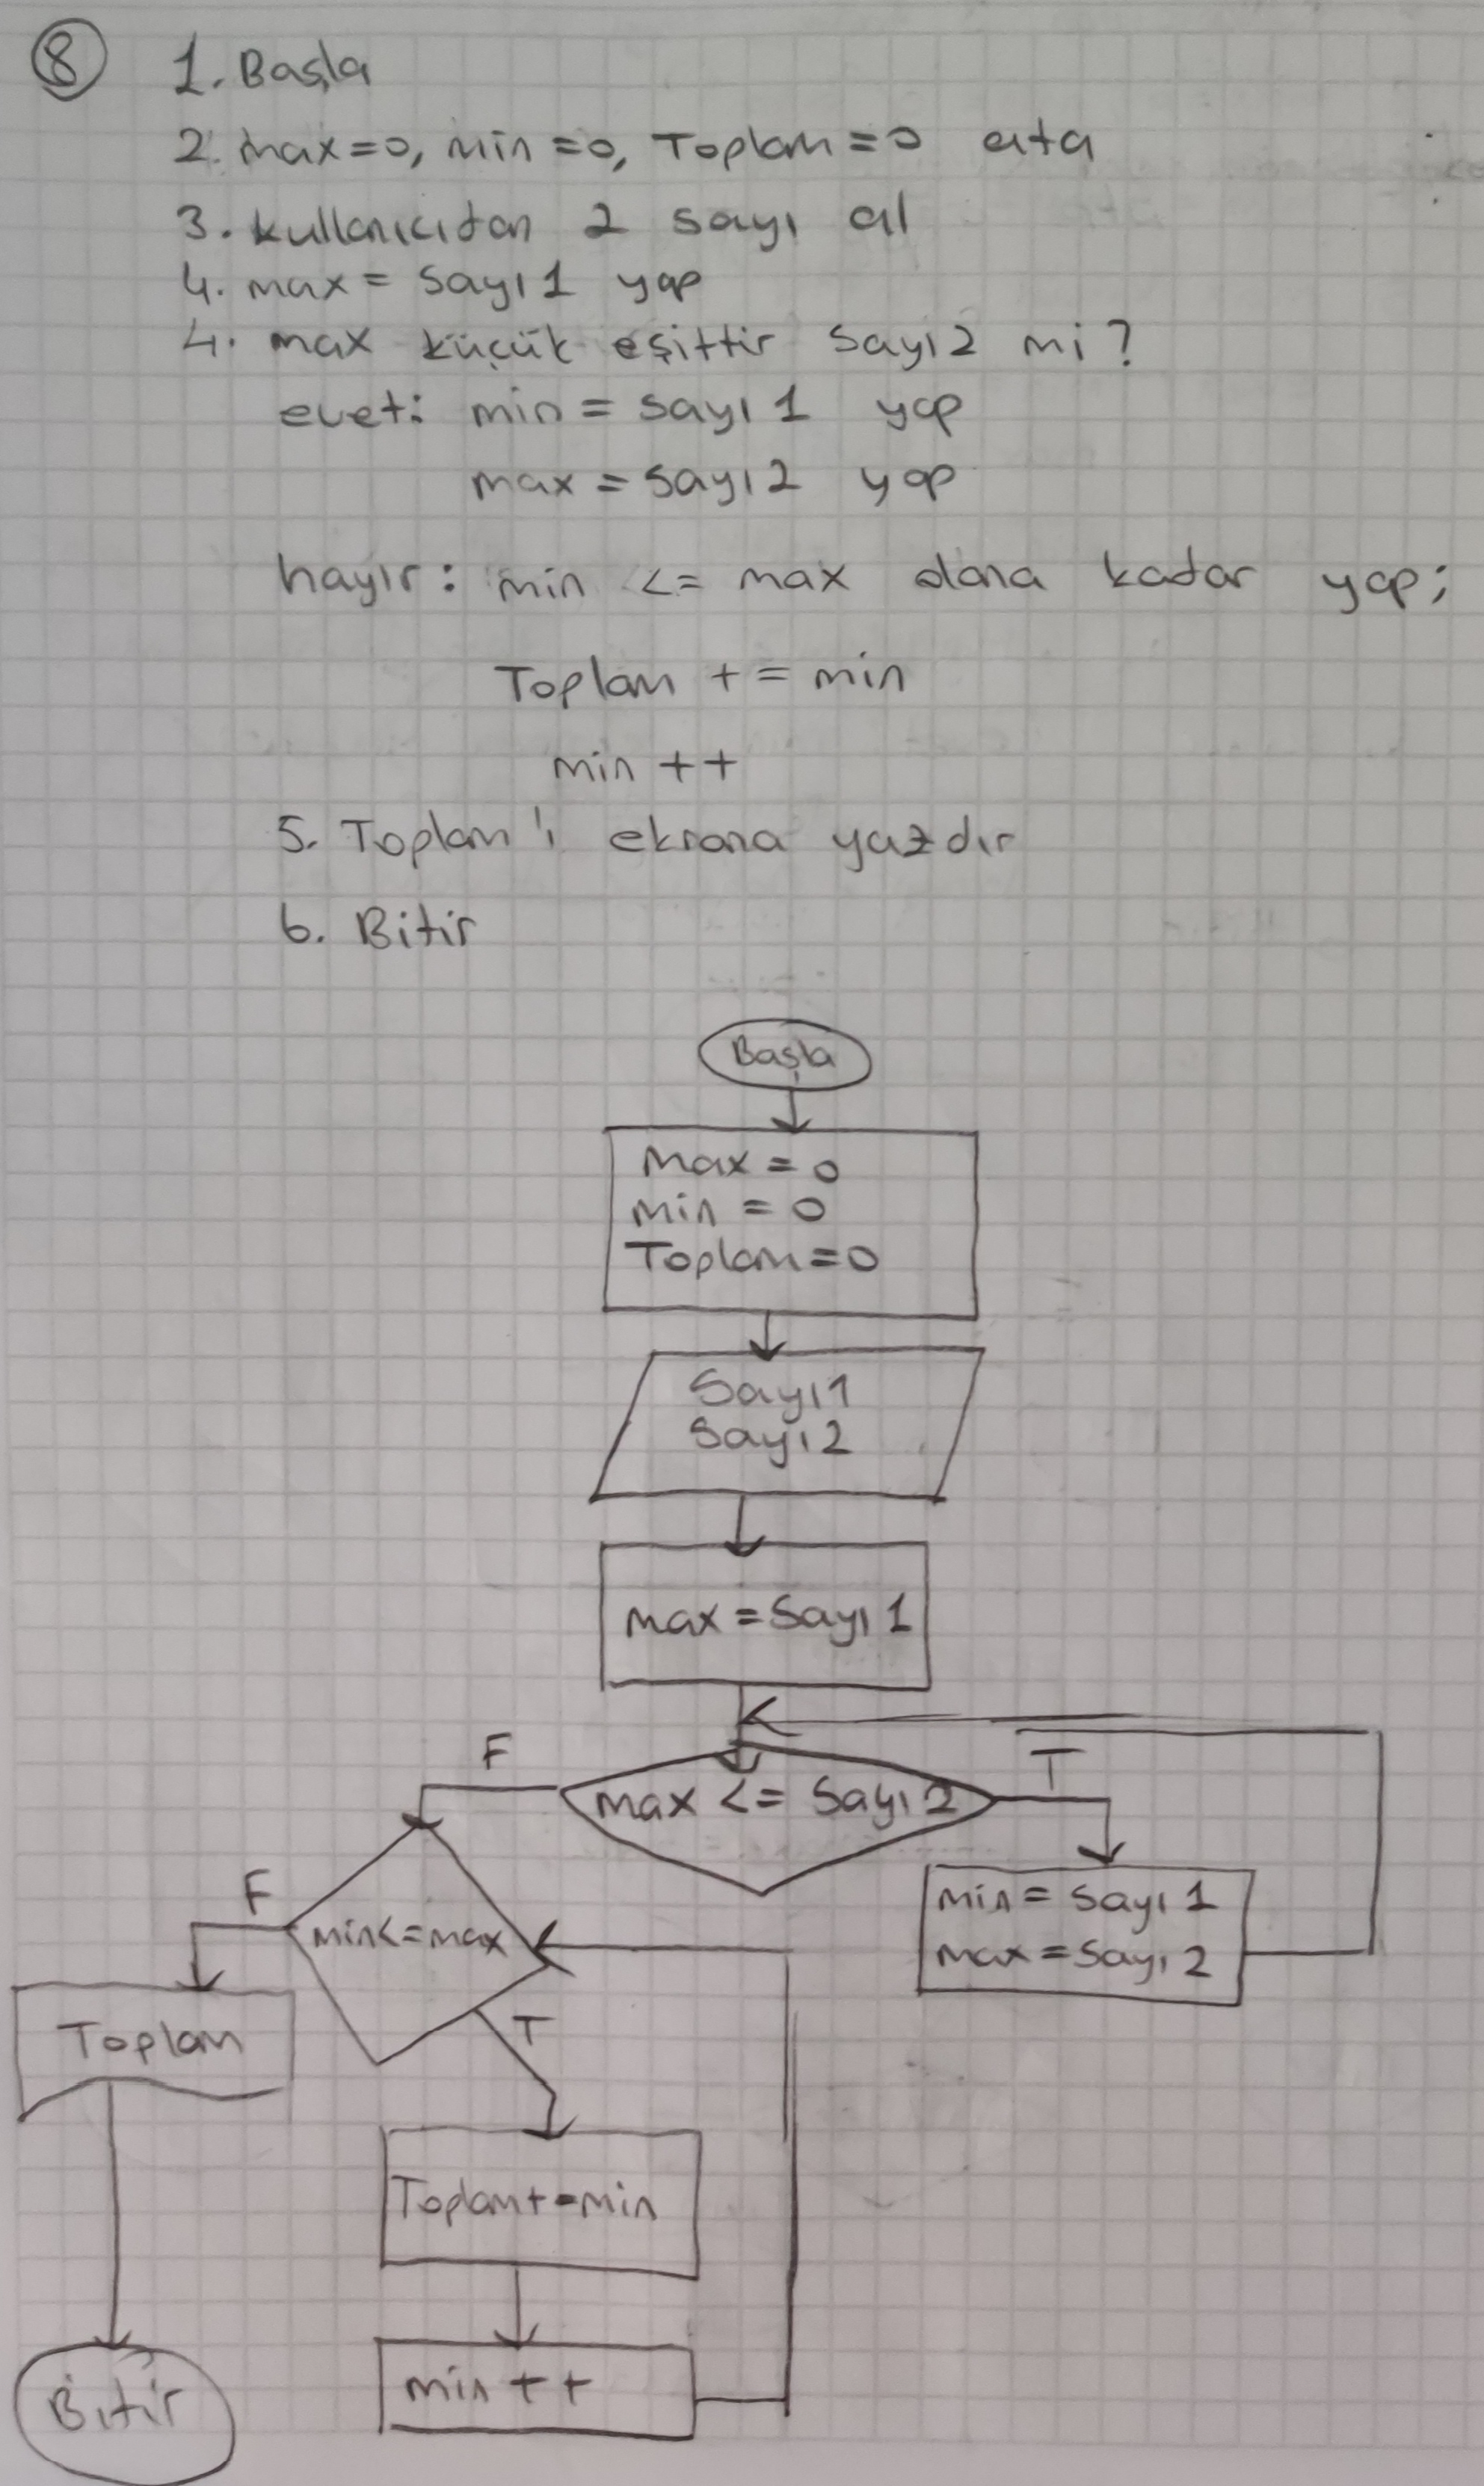 8
1. Başla
2. max=0, min=0, Toplam=0 ata
3. kullanıcıdan 2 sayı al
4. max = sayı1 yap
4. max küçük eşittir sayı2 mi?
evet: min = sayı 1 yap
max = sayı2 yap
hayır: min <= max olana kadar yap;
Toplam += min
min ++
5. Toplam'ı ekrana yazdır
6. Bitir
Başla
max = 0
min = 0
Toplam=0
Sayı1
Sayı2
max = Sayı 1
F
max <= Sayı 2
T
F
min<=max
min = sayı 1
max = Sayı 2
Toplam
T
Toplam+=min
min ++
Bitir